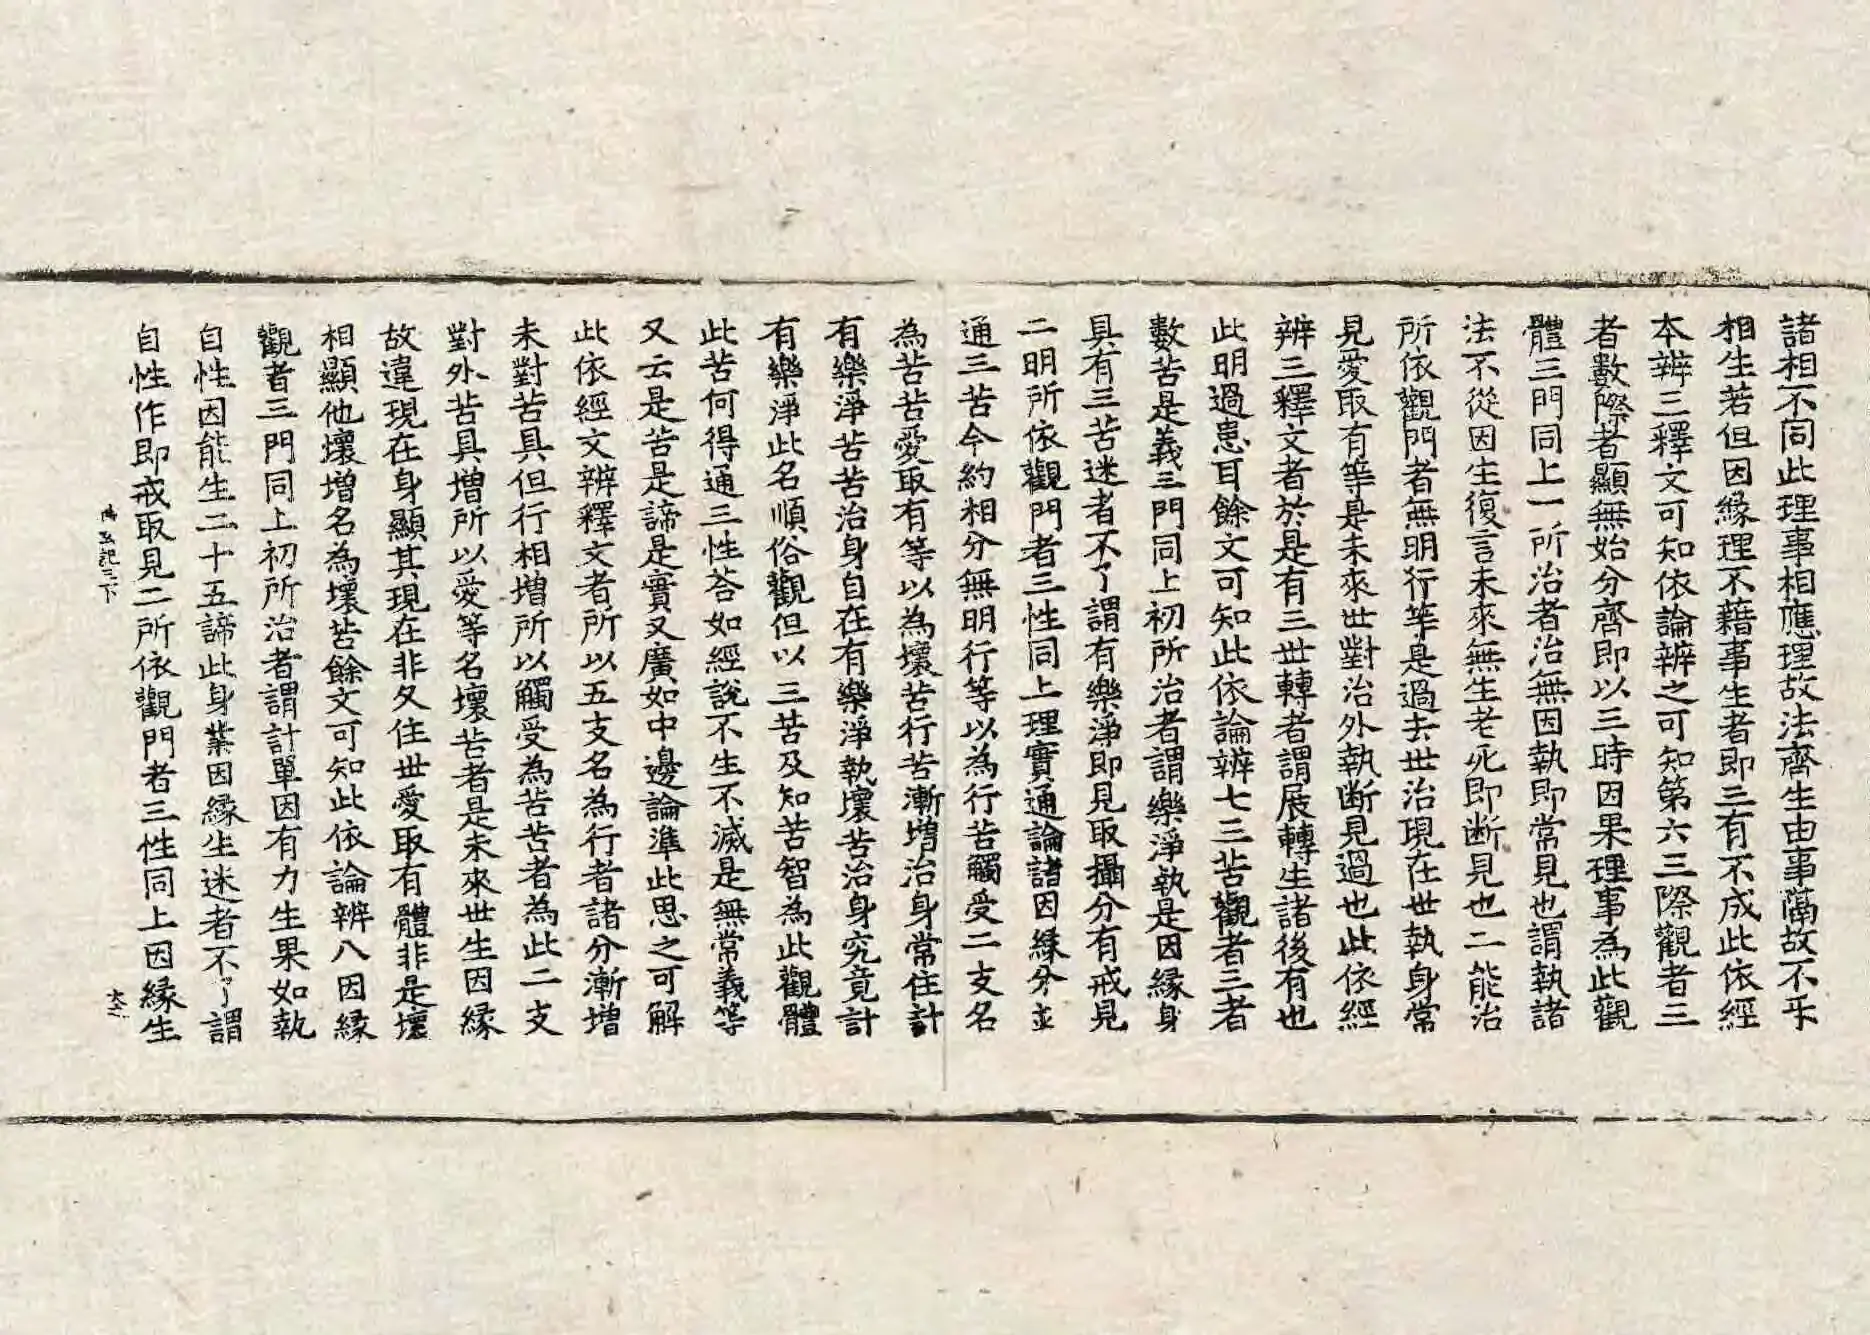 諸相不同此理事相應理故法齊生由事隔故不乐
相生若但因緣理不藉事生者即三有不成此依經
本辨三釋文可知依論辨之可知第六三際觀者三
者數際者顯無始分齊即以三時因果理事為此觀
體三門同上一所治者治無因執即常見也謂執諸
法不從因生復言未來無生老死即断見也二能治
所依觀門者無明行等是過去世治現在世執身常
見愛取有等是未來世對治外執断見過也此依經
辨三釋文者於是有三世轉者謂展轉生諸後有也
此明過患耳餘文可知此依論辨七三苦觀者三者
數苦是義三門同上初所治者謂樂淨執是因緣身
具有三苦迷者不了謂有樂淨即見取攝分有戒見
二明所依觀門者三性同上理實通論諸因緣分並
通三苦今約相分無明行等以為行苦觸受二支名
為苦苦愛取有等以為壞苦行苦漸增治身常住計
有樂淨苦苦治身自在有樂淨執壞苦治身究竟計
有樂淨此名順俗觀但以三苦及知苦智為此觀體
此苦何得通三性荅如經說不生不滅是無常義等
又云是苦是諦是實又廣如中邊論準此思之可解
此依經文辨釋文者所以五支名為行者諸分漸增
未對苦具但行相增所以觸受為苦苦者為此二支
對外苦具增所以愛等名壞苦者是未來世生因緣
故違現在身顯其現在非久住世愛取有體非是壞
相顯他壞增名為壞苦餘文可知此依論辨八因緣
觀者三門同上初所治者謂計單因有力生果如執
自性因能生二十五諦此身業因緣生迷者不了謂
自性作即戒取見二所依觀門者三性同上因緣生
記三下